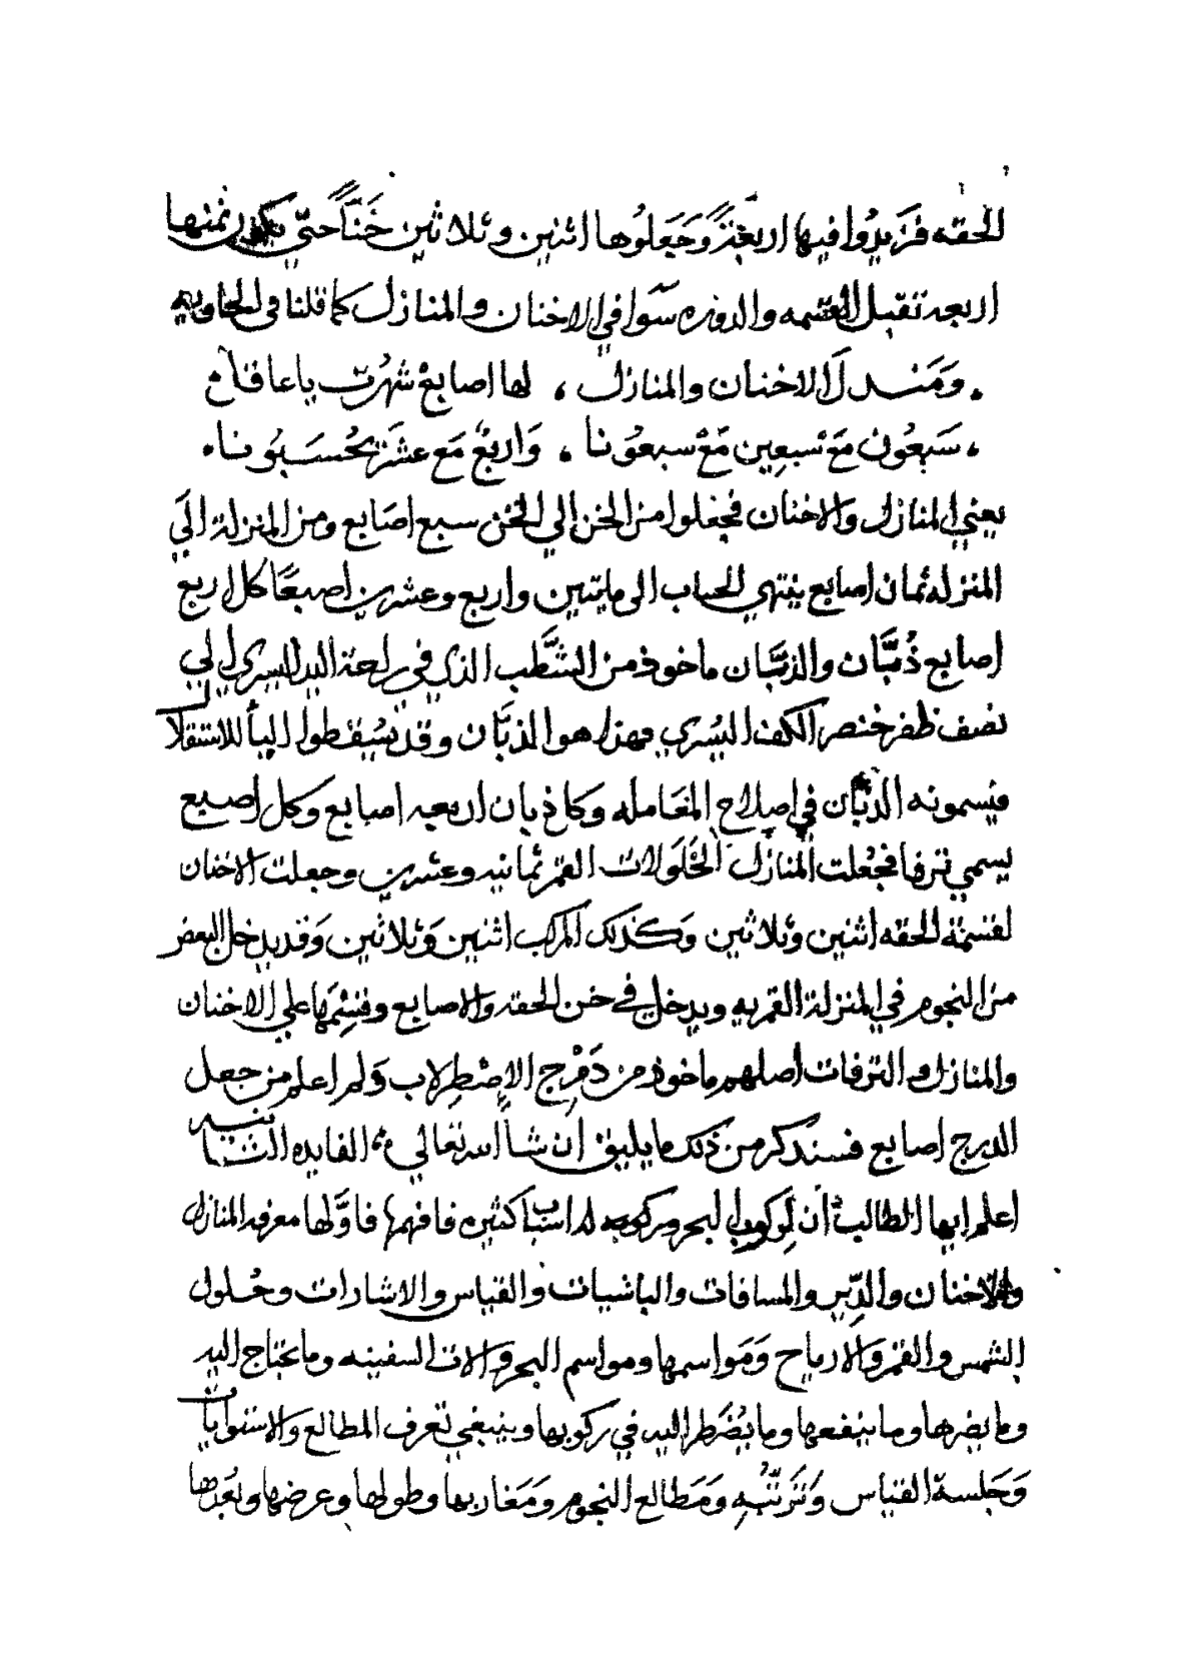 الحقه فزَيدُوا فيها اربعَةً وَجَعَلُوها اثنين وثلاثين خَنّاً حتّي يكون ثمنها
اربعه تقبل القسمه والدوره سَوا في الاخنان والمنازل كما قلنا في الحاويه
وَمَنـدل الاخنان والمنازل ، لها اصابعٌ شهُرت ياعاقلا
سَبعُون مَعْ سبعِين مَعْ سبعُونا ، وَاربعٌ مَع عشرَ يحُسَبُونا
يعني المنازل والاخنان فجعلوا من الخن إلي الخن سبع اصَابع ومن المنزلة الَي
المنزله ثمان اصابع ينتهي الحساب الى مايتين واربع وعشرين اصبعًا كل اربع
اصابع ذُبَّان والذبَّان ماخوذ من الشَّطب الذي في راحة اليد اليسري الي
نصف ظفر خنصر الكف اليُسري فهذا هو الذبَّان وقد يسُقطوا اليأ للاستقلال
فيسمونه الذبَّان في اصلاح المعَامله وكل ذبان اربعه اصابع وكل اصبع
يسمي ترفا فجُعلت المنازل الخَلَولات القمر ثمانيه وعشرين وجعلت الاخنان
لقسمَة الحقه اثنين وثلاثين وَكذلك المراكب اثنين وَثلاثين وَقد يدخل البعض
من النجوم في المنزلة القمريه ويدخل في خن الحقه والاصابع وقسِمَها علي الاخنان
والمنازل والترفات اصلهم ماخوذ من دَرَج الاِصْطِرلاب وَلم اعلم من جعل
الدرج اصابع فسنذكر من ذلك ما يليق ان شا الله تعَالي الفايده الثانيه
اعلم ايها الطالب أن لِركوب البحر اسباب كثيره فافهمها فاوَّلها معرفه المنازل
والاخنان والدِّير والمسافات والباشيات والقياس والاشارات وحُلول
الشمس والقمر والارياح وَمَواسمها ومواسم البحر والات السفينه وما يحتاج اليه
وما يضرها وما ينفعها وما يُضطر اليه في ركوبها وينبغي تعرف المطالع وَالاستوايات
وَجَلسة القياس وَتَرتّبُه وَمَطالع النجوم وَمَغاربها وطولها وعرضها وبُعدها